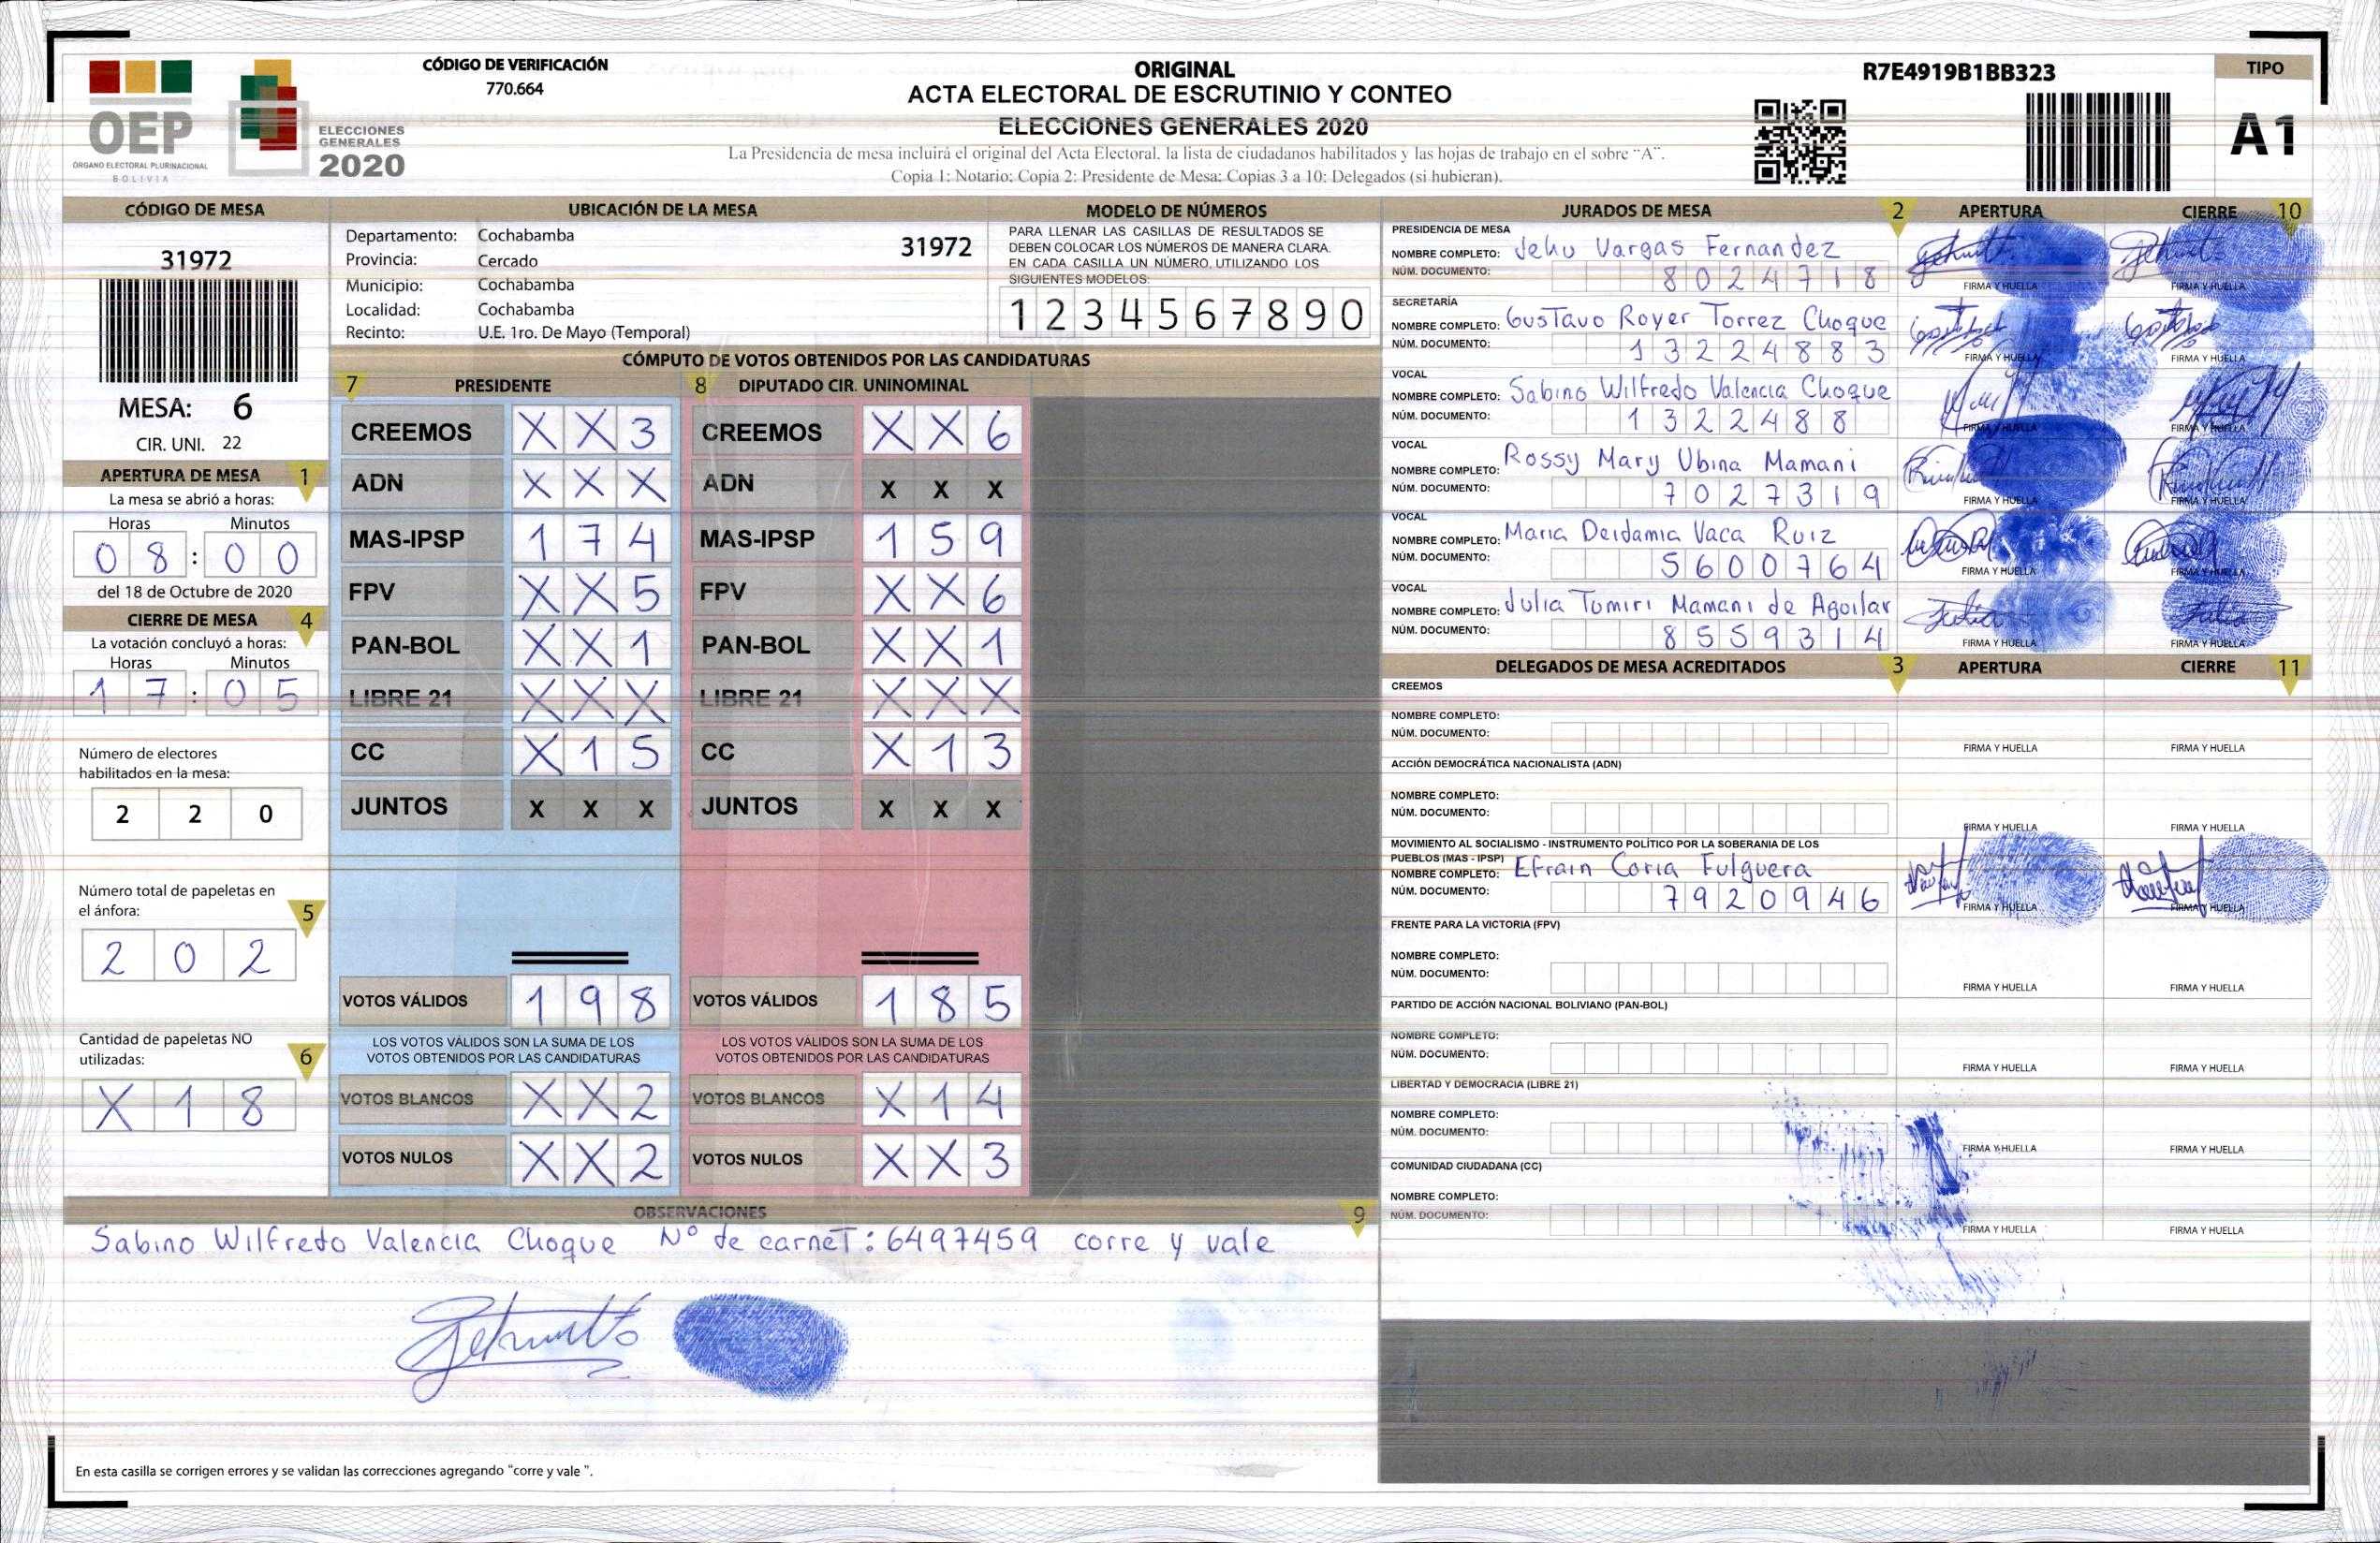 CÓDIGO DE VERIFICACIÓN
770.664
OEP
ÓRGANO ELECTORAL PLURINACIONAL
BOLIVIA
ELECCIONES
GENERALES
2020
ORIGINAL
ACTA ELECTORAL DE ESCRUTINIO Y CONTEO
ELECCIONES GENERALES 2020
La Presidencia de mesa incluirá el original del Acta Electoral, la lista de ciudadanos habilitados y las hojas de trabajo en el sobre "A".
Copia 1: Notario; Copia 2: Presidente de Mesa; Copias 3 a 10: Delegados (si hubieran).
R7E4919B1BB323
TIPO
A1
CÓDIGO DE MESA
31972
MESA: 6
CIR. UNI. 22
APERTURA DE MESA 1
La mesa se abrió a horas:
Horas Minutos
08:00
del 18 de Octubre de 2020
CIERRE DE MESA 4
La votación concluyó a horas:
Horas Minutos
17:05
Número de electores
habilitados en la mesa:
2 2 0
Número total de papeletas en
el ánfora: 5
2 0 2
Cantidad de papeletas NO
utilizadas: 6
X 1 8
UBICACIÓN DE LA MESA
Departamento: Cochabamba 31972
Provincia: Cercado
Municipio: Cochabamba
Localidad: Cochabamba
Recinto: U.E. 1ro. De Mayo (Temporal)
MODELO DE NÚMEROS
PARA LLENAR LAS CASILLAS DE RESULTADOS SE
DEBEN COLOCAR LOS NÚMEROS DE MANERA CLARA.
EN CADA CASILLA UN NÚMERO, UTILIZANDO LOS
SIGUIENTES MODELOS:
1 2 3 4 5 6 7 8 9 0
CÓMPUTO DE VOTOS OBTENIDOS POR LAS CANDIDATURAS
7 PRESIDENTE 8 DIPUTADO CIR. UNINOMINAL
CREEMOS X X 3 CREEMOS X X 6
ADN X X X ADN X X X
MAS-IPSP 1 7 4 MAS-IPSP 1 5 9
FPV X X 5 FPV X X 6
PAN-BOL X X 1 PAN-BOL X X 1
LIBRE 21 X X X LIBRE 21 X X X
CC X 1 5 CC X 1 3
JUNTOS X X X JUNTOS X X X
VOTOS VÁLIDOS 1 9 8 VOTOS VÁLIDOS 1 8 5
LOS VOTOS VÁLIDOS SON LA SUMA DE LOS LOS VOTOS VÁLIDOS SON LA SUMA DE LOS
VOTOS OBTENIDOS POR LAS CANDIDATURAS VOTOS OBTENIDOS POR LAS CANDIDATURAS
VOTOS BLANCOS X X 2 VOTOS BLANCOS X 1 4
VOTOS NULOS X X 2 VOTOS NULOS X X 3
OBSERVACIONES 9
Sabino Wilfredo Valencia Choque Nº de carneT: 6497459 corre y vale
En esta casilla se corrigen errores y se validan las correcciones agregando "corre y vale ".
JURADOS DE MESA 2 APERTURA CIERRE 10
PRESIDENCIA DE MESA
NOMBRE COMPLETO: Jehu Vargas Fernandez
NÚM. DOCUMENTO: 8024718 FIRMA Y HUELLA FIRMA Y HUELLA
SECRETARÍA
NOMBRE COMPLETO: GusTavo Royer Torrez Choque
NÚM. DOCUMENTO: 13224883 FIRMA Y HUELLA FIRMA Y HUELLA
VOCAL
NOMBRE COMPLETO: Sabino Wilfredo Valencia Choque
NÚM. DOCUMENTO: 1322488 FIRMA Y HUELLA FIRMA Y HUELLA
VOCAL
NOMBRE COMPLETO: Rossy Mary Ubina Mamani
NÚM. DOCUMENTO: 7027319 FIRMA Y HUELLA FIRMA Y HUELLA
VOCAL
NOMBRE COMPLETO: Maria Deidamia Vaca Ruiz
NÚM. DOCUMENTO: 5600764 FIRMA Y HUELLA FIRMA Y HUELLA
VOCAL
NOMBRE COMPLETO: Julia Tomiri Mamani de Aguilar
NÚM. DOCUMENTO: 8559314 FIRMA Y HUELLA FIRMA Y HUELLA
DELEGADOS DE MESA ACREDITADOS 3 APERTURA CIERRE 11
CREEMOS
NOMBRE COMPLETO:
NÚM. DOCUMENTO: FIRMA Y HUELLA FIRMA Y HUELLA
ACCIÓN DEMOCRÁTICA NACIONALISTA (ADN)
NOMBRE COMPLETO:
NÚM. DOCUMENTO: FIRMA Y HUELLA FIRMA Y HUELLA
MOVIMIENTO AL SOCIALISMO - INSTRUMENTO POLÍTICO POR LA SOBERANIA DE LOS
PUEBLOS (MAS - IPSP)
NOMBRE COMPLETO: Efrain Coria Fulguera
NÚM. DOCUMENTO: 7920946 FIRMA Y HUELLA FIRMA Y HUELLA
FRENTE PARA LA VICTORIA (FPV)
NOMBRE COMPLETO:
NÚM. DOCUMENTO: FIRMA Y HUELLA FIRMA Y HUELLA
PARTIDO DE ACCIÓN NACIONAL BOLIVIANO (PAN-BOL)
NOMBRE COMPLETO:
NÚM. DOCUMENTO: FIRMA Y HUELLA FIRMA Y HUELLA
LIBERTAD Y DEMOCRACIA (LIBRE 21)
NOMBRE COMPLETO:
NÚM. DOCUMENTO: FIRMA Y HUELLA FIRMA Y HUELLA
COMUNIDAD CIUDADANA (CC)
NOMBRE COMPLETO:
NÚM. DOCUMENTO: FIRMA Y HUELLA FIRMA Y HUELLA